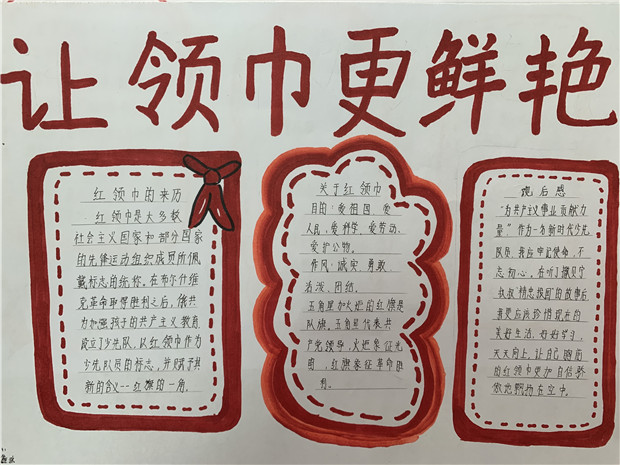 让领巾更鲜艳
红领巾的来历
红领巾是大多数
社会主义国家和部分国家
的先锋运动组织成员所佩
戴标志的统称。在布尔什维
克革命取得胜利之后，俄共
为加强孩子的共产主义教育
设立了少先队，以红领巾作为
少先队员的标志，并赋予其
新的含义--红旗的一角。
关于红领巾
目的：爱祖国、爱
人民、爱科学、爱劳动、
爱护公物。
作风：诚实、勇敢
活泼、团结。
五角星加火炬的红旗是
队旗。五角星代表共
产党领导，火炬象征光
明，红旗象征革命胜
利。
观后感
“为共产主义事业贡献力
量”作为一名新时代少先
队员，我应牢记使命，不
忘初心，在听了
叔叔精忠报国的故事后
我更应该珍惜现在的
美好生活，好好学习，
天天向上，让自己胸前
的红领巾更加自信骄
傲地飘扬在空中。